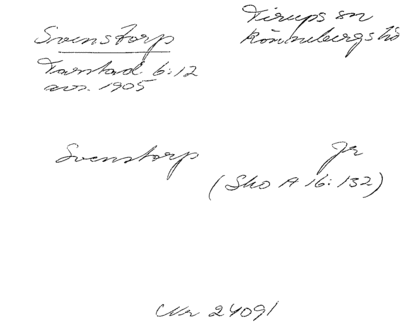 Svenstorp
Tirups sn
Rönnebergs hd
Torstad. 6:12
avs. 1905
Svenstorp
Jr
(Sko A 16:132)
Nr 24091